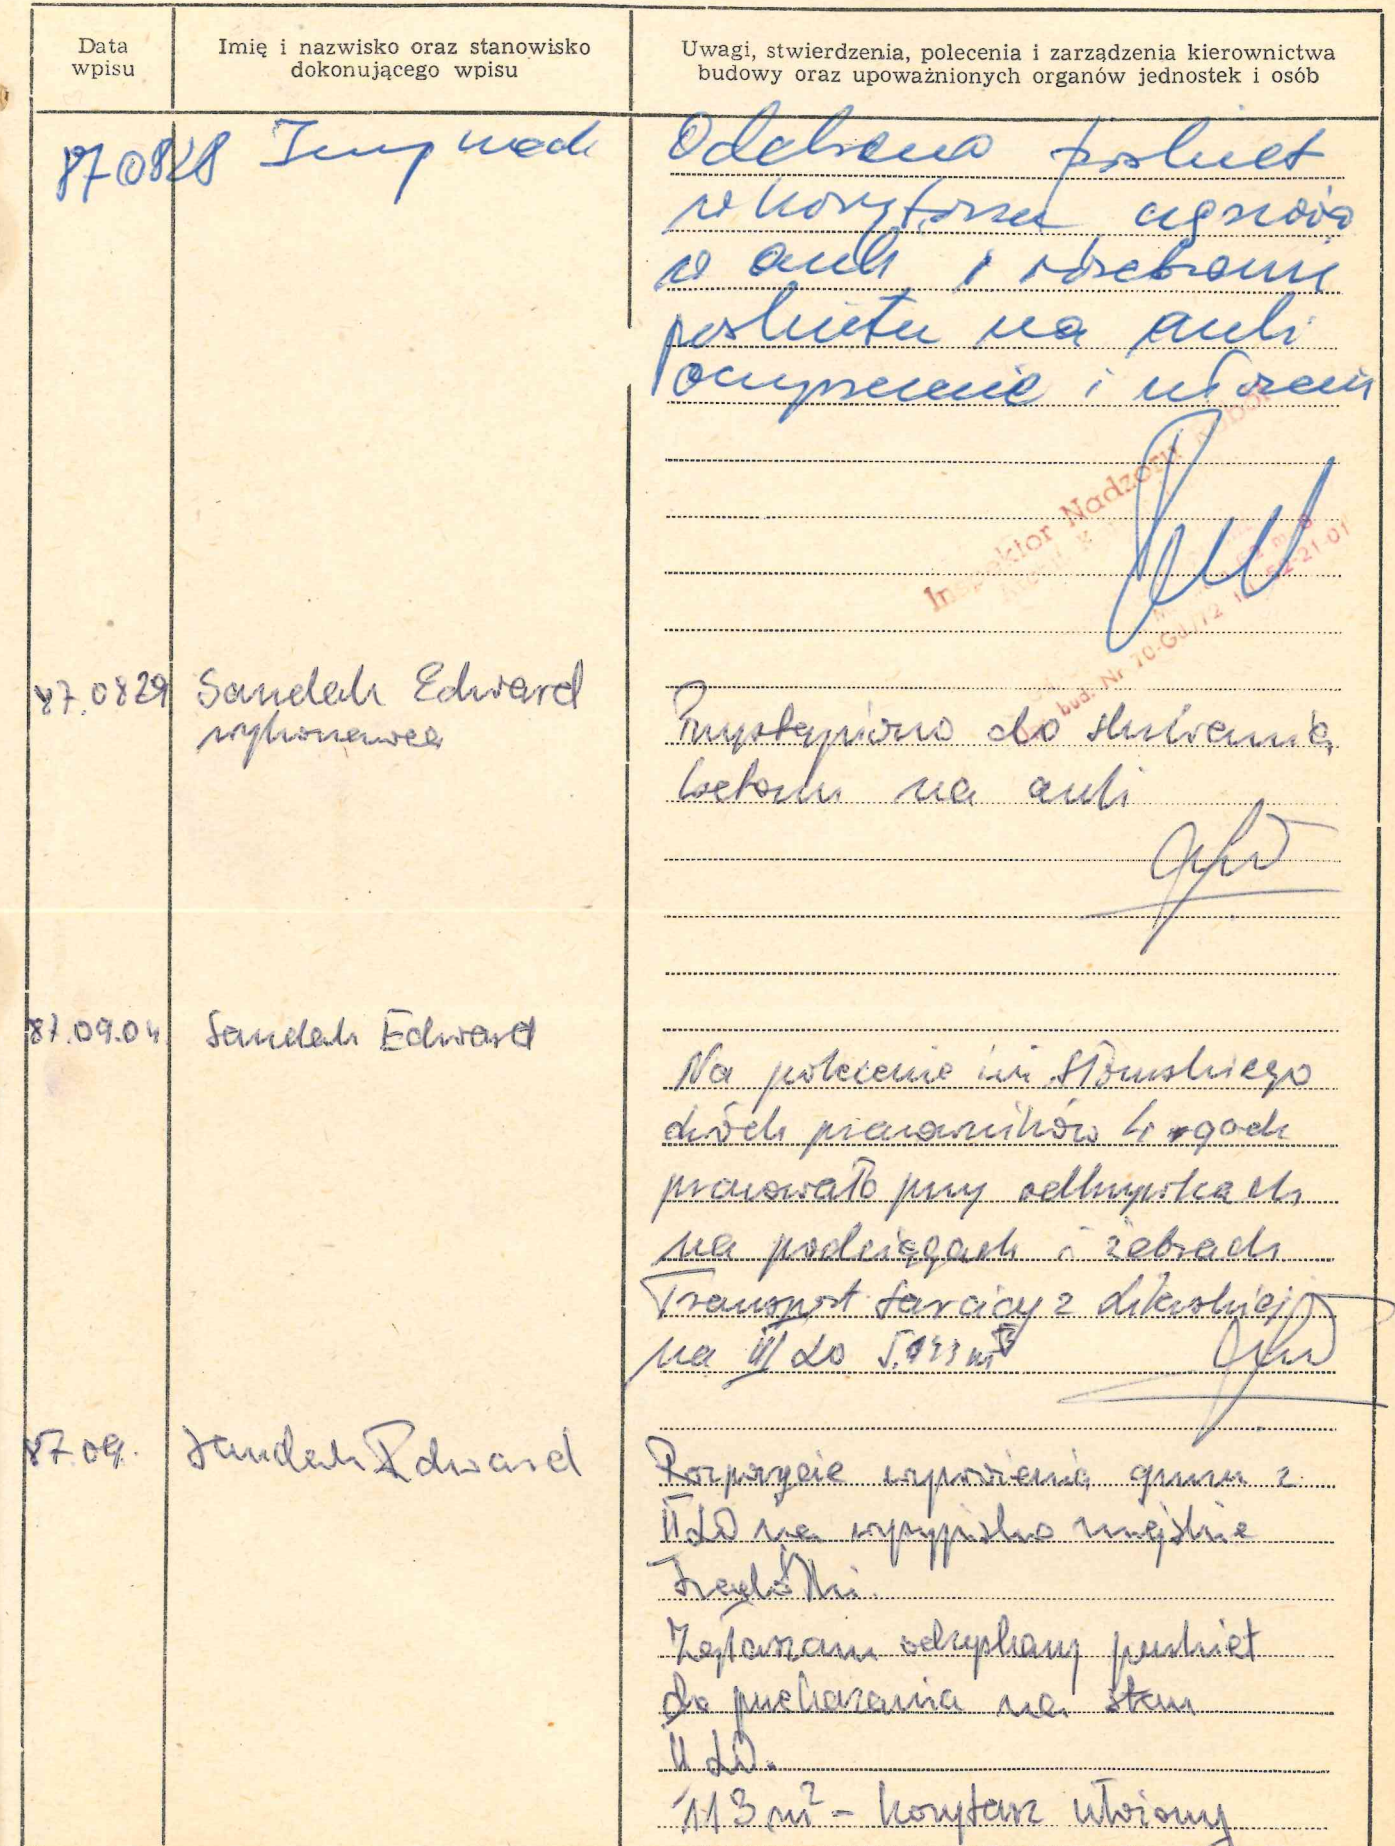 Data
wpisu
Imię i nazwisko oraz stanowisko
dokonującego wpisu
Uwagi, stwierdzenia, polecenia i zarządzenia kierownictwa
budowy oraz upoważnionych organów jednostek i osób
87 08 28
Odebrano parkiet
w korytarzu
w auli i
parkietu na auli
i
Inspektor Nadzoru
bud. Nr 70-Gd/72
52-21-01
87.08 29
Sandak Edward
wykonawca
Przystąpiono do skuwania
betonu na auli
87.09.04
Sandak Edward
Na polecenie inż Słomskiego
dwóch pracowników 4 godz
pracowało przy odkrywkach
na podciągach i żebrach
Transport tarcicy z
na III LO
87.09.
Sandak Edward
Rozpoczęcie wywożenia gruzu z
II LO na wysypisko miejskie
Szadółki.
Zgłaszam odzyskany parkiet
do przekazania na stan
II LO.
113 m² - korytarz ułożony